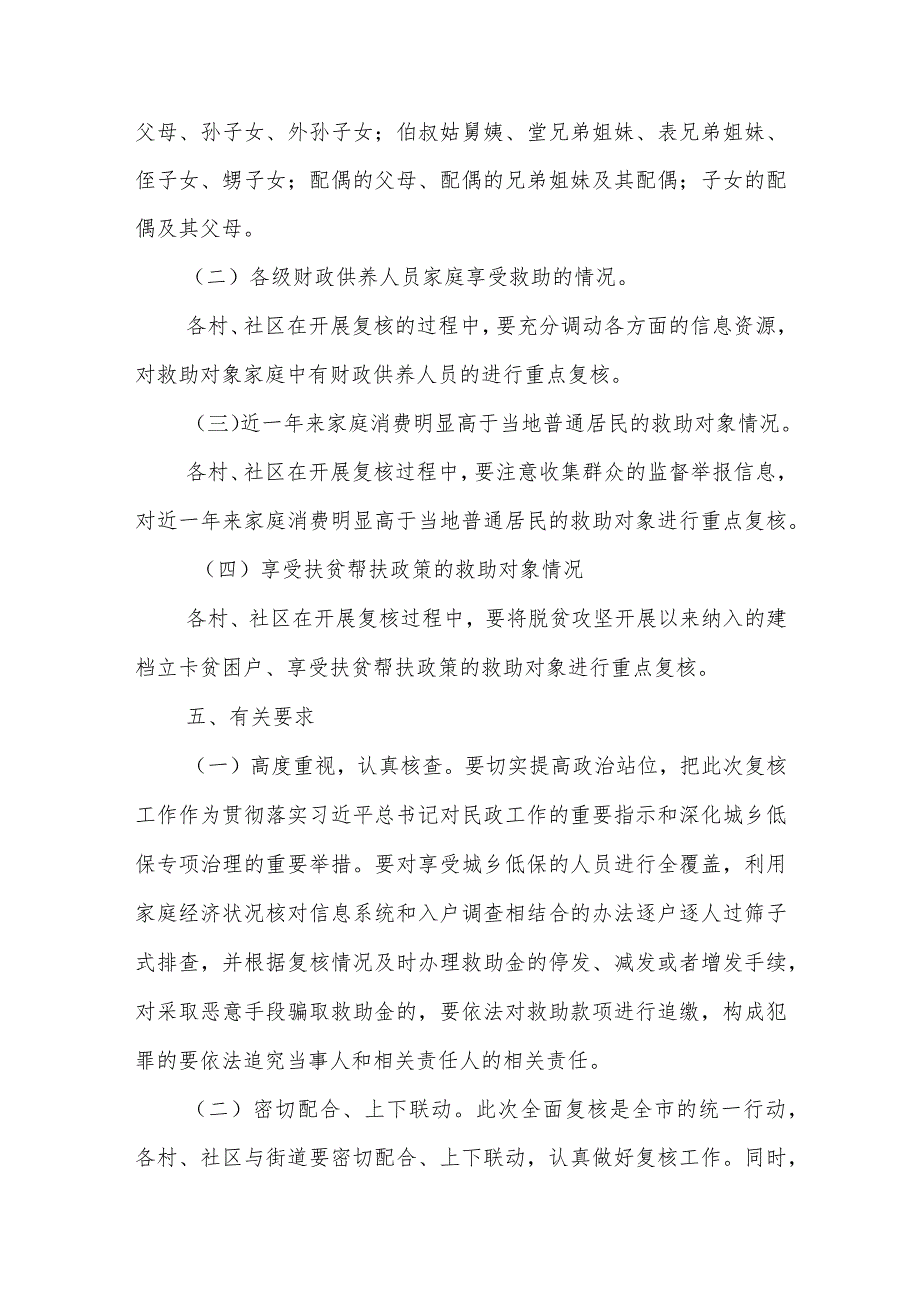 父母、孙子女、外孙子女；伯叔姑舅姨、堂兄弟姐妹、表兄弟姐妹、
侄子女、甥子女；配偶的父母、配偶的兄弟姐妹及其配偶；子女的配
偶及其父母。
（二）各级财政供养人员家庭享受救助的情况。
各村、社区在开展复核的过程中，要充分调动各方面的信息资源，
对救助对象家庭中有财政供养人员的进行重点复核。
（三）近一年来家庭消费明显高于当地普通居民的救助对象情况。
各村、社区在开展复核过程中，要注意收集群众的监督举报信息，
对近一年来家庭消费明显高于当地普通居民的救助对象进行重点复核。
（四）享受扶贫帮扶政策的救助对象情况
各村、社区在开展复核过程中，要将脱贫攻坚开展以来纳入的建
档立卡贫困户、享受扶贫帮扶政策的救助对象进行重点复核。
五、有关要求
（一）高度重视，认真核查。要切实提高政治站位，把此次复核
工作作为贯彻落实习近平总书记对民政工作的重要指示和深化城乡低
保专项治理的重要举措。要对享受城乡低保的人员进行全覆盖，利用
家庭经济状况核对信息系统和入户调查相结合的办法逐户逐人过筛子
式排查，并根据复核情况及时办理救助金的停发、减发或者增发手续，
对采取恶意手段骗取救助金的，要依法对救助款项进行追缴，构成犯
罪的要依法追究当事人和相关责任人的相关责任。
（二）密切配合、上下联动。此次全面复核是全市的统一行动，
各村、社区与街道要密切配合、上下联动，认真做好复核工作。同时，